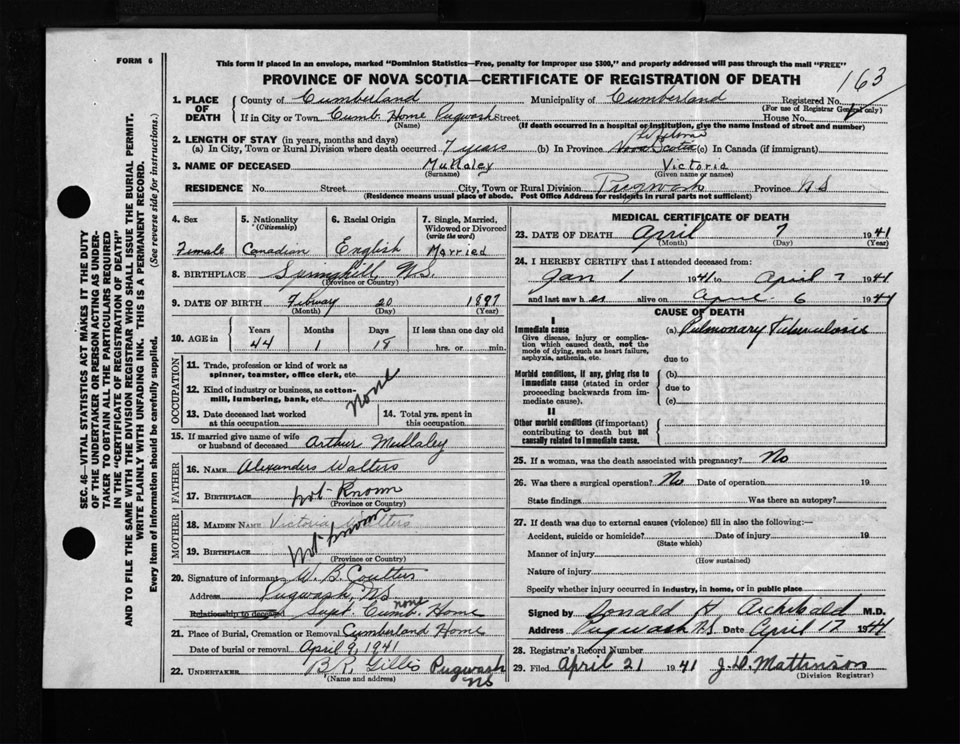 FORM 6
This form if placed in an envelope, marked "Dominion Statistics—Free, penalty for improper use $300," and properly addressed will pass through the mail "FREE"
PROVINCE OF NOVA SCOTIA—CERTIFICATE OF REGISTRATION OF DEATH
163
1. PLACE OF DEATH
County of Cumberland Municipality of Cumberland Registered No.
(For use of Registrar General only)
If in City or Town Cumb. Home Pugwash Street House No.
(Name) (If death occurred in a hospital or institution, give the name instead of street and number)
2. LENGTH OF STAY (in years, months and days)
(a) In City, Town or Rural Division where death occurred 7 years (b) In Province Lifetime Nova Scotia (c) In Canada (if immigrant)
3. NAME OF DECEASED Mullaley Victoria
(Surname) (Given name or names)
RESIDENCE No. Street City, Town or Rural Division Pugwash Province N S
(Residence means usual place of abode. Post Office Address for residents in rural parts not sufficient)
4. Sex 5. Nationality (Citizenship) 6. Racial Origin 7. Single, Married, Widowed or Divorced (write the word)
Female Canadian English Married
8. BIRTHPLACE Springhill, N.S.
(Province or Country)
9. DATE OF BIRTH 20 1897
(Month) (Day) (Year)
10. AGE in Years Months Days If less than one day old
44 1 18 hrs. or min.
OCCUPATION
11. Trade, profession or kind of work as spinner, teamster, office clerk, etc.
12. Kind of industry or business, as cotton-mill, lumbering, bank, etc. none
13. Date deceased last worked at this occupation 14. Total yrs. spent in this occupation
15. If married give name of wife or husband of deceased Arthur Mullaley
FATHER
16. NAME Alexanders Walters
17. BIRTHPLACE not Known
(Province or Country)
MOTHER
18. MAIDEN NAME Victoria Walters
19. BIRTHPLACE not known
(Province or Country)
20. Signature of informant W. B. Coulter
Address Pugwash, N S
Relationship to deceased none Supt. Cumb. Home
21. Place of Burial, Cremation or Removal Cumberland Home
Date of burial or removal April 9, 1941
22. UNDERTAKER B. R. Gillis Pugwash NS
(Name and address)
MEDICAL CERTIFICATE OF DEATH
23. DATE OF DEATH April 7 1941
(Month) (Day) (Year)
24. I HEREBY CERTIFY that I attended deceased from:
Jan 1 1941 to April 7 1941
and last saw h er alive on April 6 1941
CAUSE OF DEATH
I
Immediate cause (a) Pulmonary Tuberculosis
Give disease, injury or complication which caused death, not the mode of dying, such as heart failure, asphyxia, asthenia, etc.
due to
Morbid conditions, if any, giving rise to immediate cause (stated in order proceeding backwards from immediate cause).
(b)
due to
(c)
II
Other morbid conditions (if important) contributing to death but not causally related to immediate cause.
25. If a woman, was the death associated with pregnancy? No
26. Was there a surgical operation? No Date of operation 19
State findings Was there an autopsy?
27. If death was due to external causes (violence) fill in also the following:—
Accident, suicide or homicide? Date of injury 19
(State which)
Manner of injury
(How sustained)
Nature of injury
Specify whether injury occurred in industry, in home, or in public place
Signed by Donald H Archibald M.D.
Address Pugwash N.S Date April 17 1941
28. Registrar's Record Number
29. Filed April 21 1941 J. D. Mattinson
(Division Registrar)
SEC. 46—VITAL STATISTICS ACT MAKES IT THE DUTY
OF THE UNDERTAKER OR PERSON ACTING AS UNDER-
TAKER TO OBTAIN ALL THE PARTICULARS REQUIRED
IN THE "CERTIFICATE OF REGISTRATION OF DEATH"
AND TO FILE THE SAME WITH THE DIVISION REGISTRAR WHO SHALL ISSUE THE BURIAL PERMIT.
WRITE PLAINLY WITH UNFADING INK. THIS IS A PERMANENT RECORD.
Every item of information should be carefully supplied. (See reverse side for instructions.)